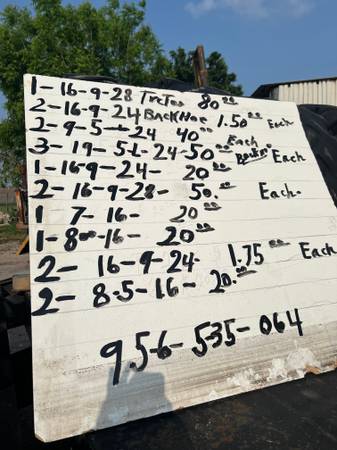 1-16-9-28 80.00
2-16-9-24 BackHoe 1.50 00 Each
2-9-5-24 40 00 Each
3-19-5L-24-50 00 Each
1-16-9-24- 20 00
2-16-9-28- 50. 00 Each-
1 7-16- 20 00
1-8 -16- 20 00
2- 16-9-24- 1.75 00 Each
2- 8-5-16- 20. 00
956-535-064